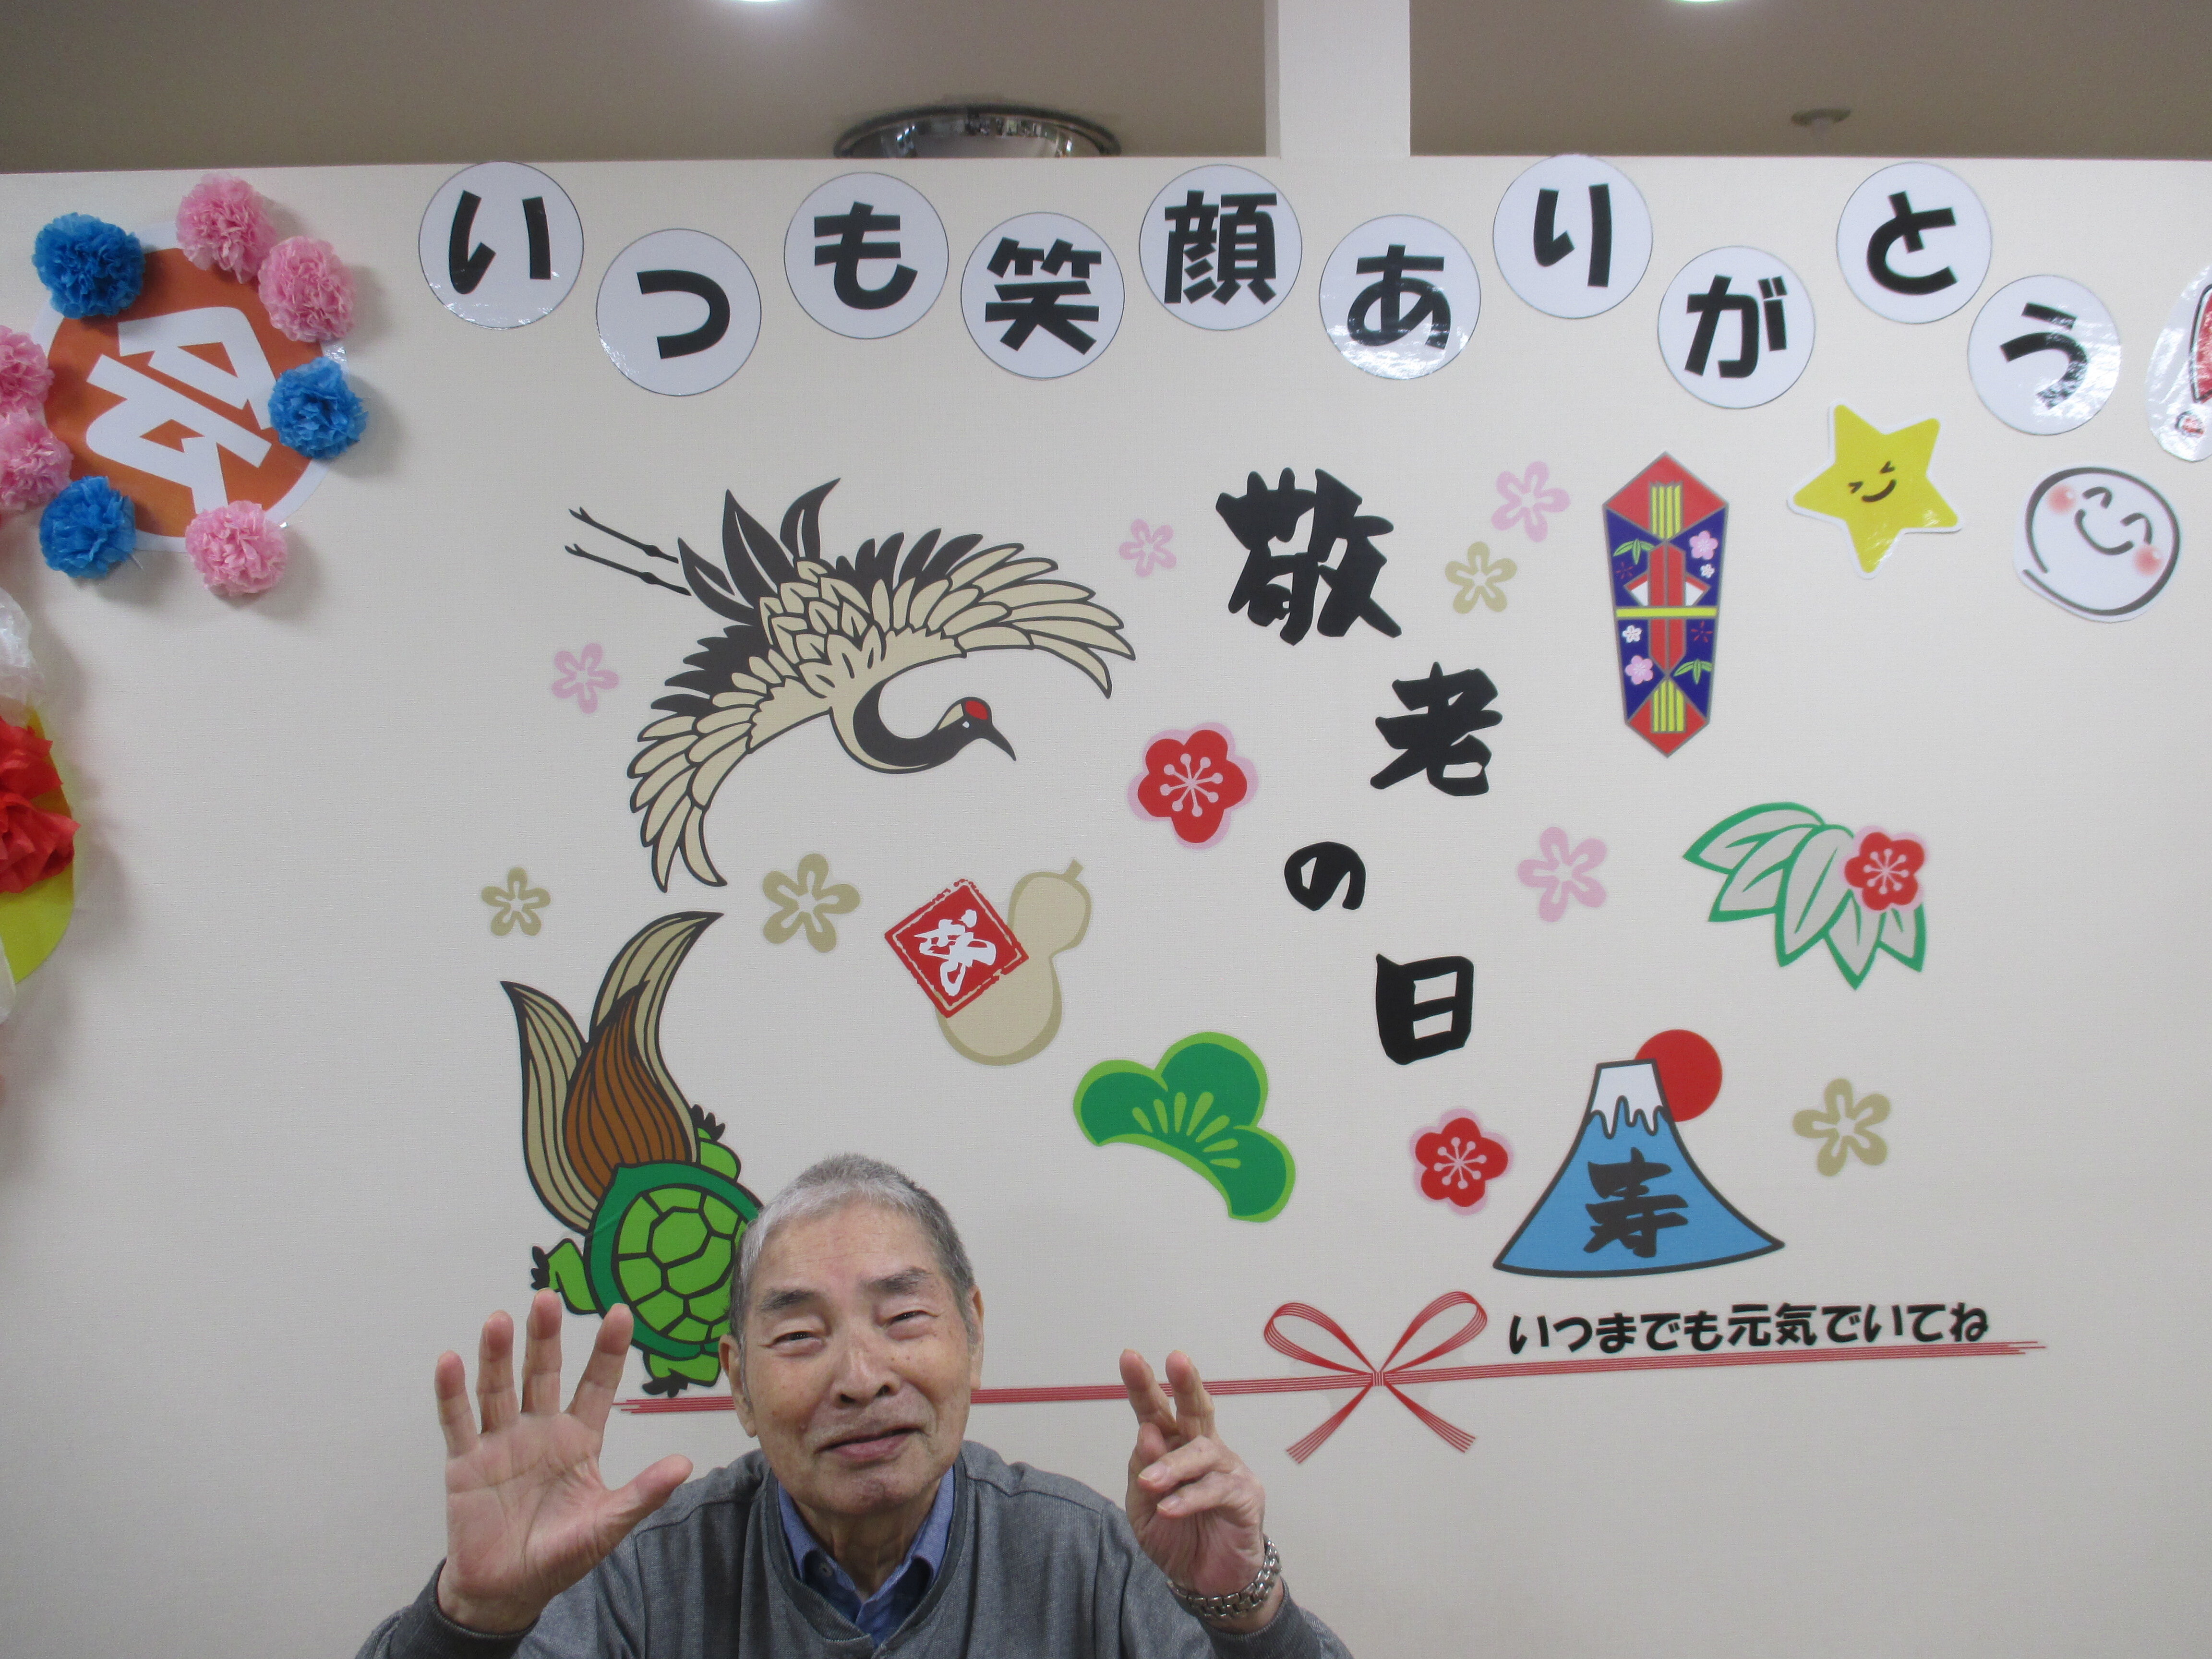 いつも笑顔ありがとう!
敬老の日
寿
いつまでも元気でいてね